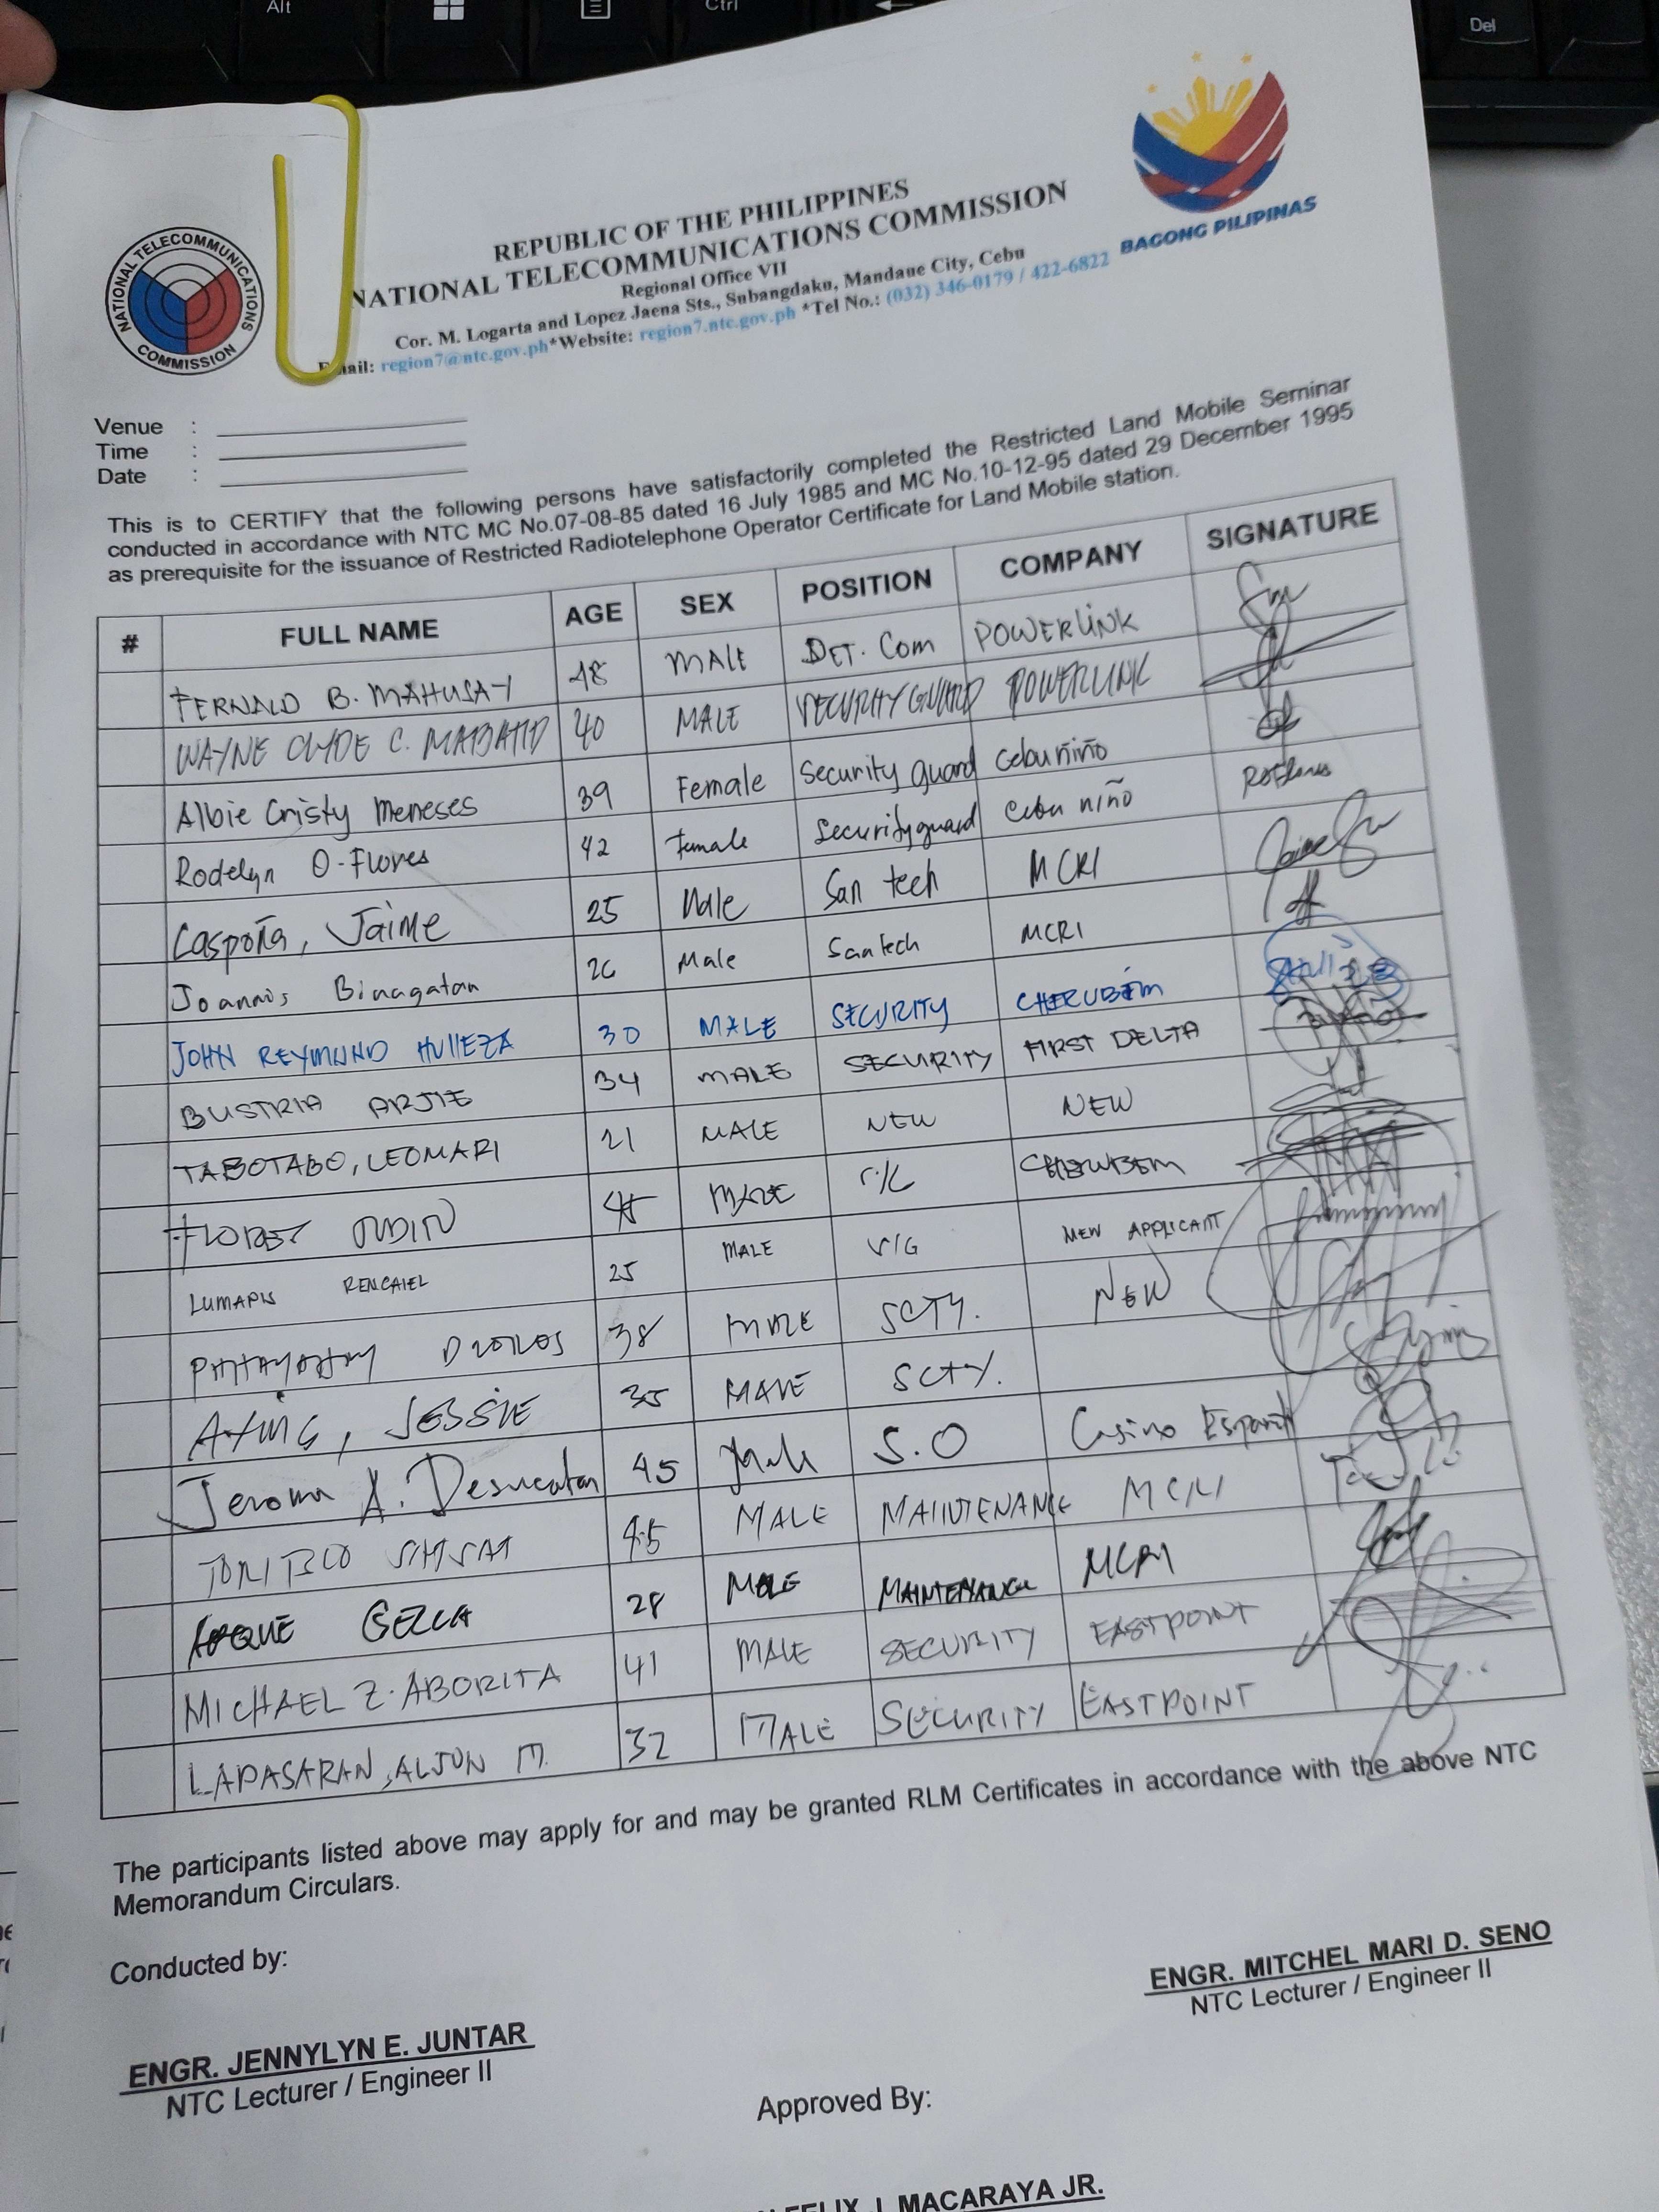 Alt
Ctrl
Del
NATIONAL TELECOMMUNICATIONS COMMISSION
BAGONG PILIPINAS
REPUBLIC OF THE PHILIPPINES
NATIONAL TELECOMMUNICATIONS COMMISSION
Regional Office VII
Cor. M. Logarta and Lopez Jaena Sts., Subangdaku, Mandaue City, Cebu
Email: region7@ntc.gov.ph*Website: region7.ntc.gov.ph *Tel No.: (032) 346-0179 / 422-6822
Venue :
Time :
Date :
This is to CERTIFY that the following persons have satisfactorily completed the Restricted Land Mobile Seminar
conducted in accordance with NTC MC No.07-08-85 dated 16 July 1985 and MC No.10-12-95 dated 29 December 1995
as prerequisite for the issuance of Restricted Radiotelephone Operator Certificate for Land Mobile station.
# FULL NAME AGE SEX POSITION COMPANY SIGNATURE
FERNALD B. MAHUSAY 48 MALE DET. Com POWERLINK
WAYNE CLYDE C. 40 MALE SECURITY GUARD POWERLINK
Albie Cristy Meneses 39 Female Security guard Cebu niño
Rodelyn O-Flores 42 Female Security guard Cebu niño
Caspoña, Jaime 25 Male San tech MCRI
Joannis Binagatan 26 Male San tech MCRI
JOHN REYMUND HULLEZA 30 MALE SECURITY CHERUBIM
BUSTRIA ARJIE 34 MALE SECURITY FIRST DELTA
TABOTABO, LEOMARI 21 MALE NEW NEW
FLORES MALE CHERUBIM
LUMAPIS RENCAIEL 25 MALE S/G NEW APPLICANT
38 MALE SCTY. NEW
AYING, JESSIE 35 MALE SCTY.
Jeroma A. Desucatan 45 Male S.O Casino Español
45 MALE MAINTENANCE MCRI
28 MALE MAINTENANCE MCRI
MICHAEL Z. ABORITA 41 MALE SECURITY EASTPOINT
LAPASARAN, ALJUN M. 32 MALE SECURITY EASTPOINT
The participants listed above may apply for and may be granted RLM Certificates in accordance with the above NTC
Memorandum Circulars.
Conducted by:
ENGR. JENNYLYN E. JUNTAR
NTC Lecturer / Engineer II
ENGR. MITCHEL MARI D. SENO
NTC Lecturer / Engineer II
Approved By:
FELIX J. MACARAYA JR.